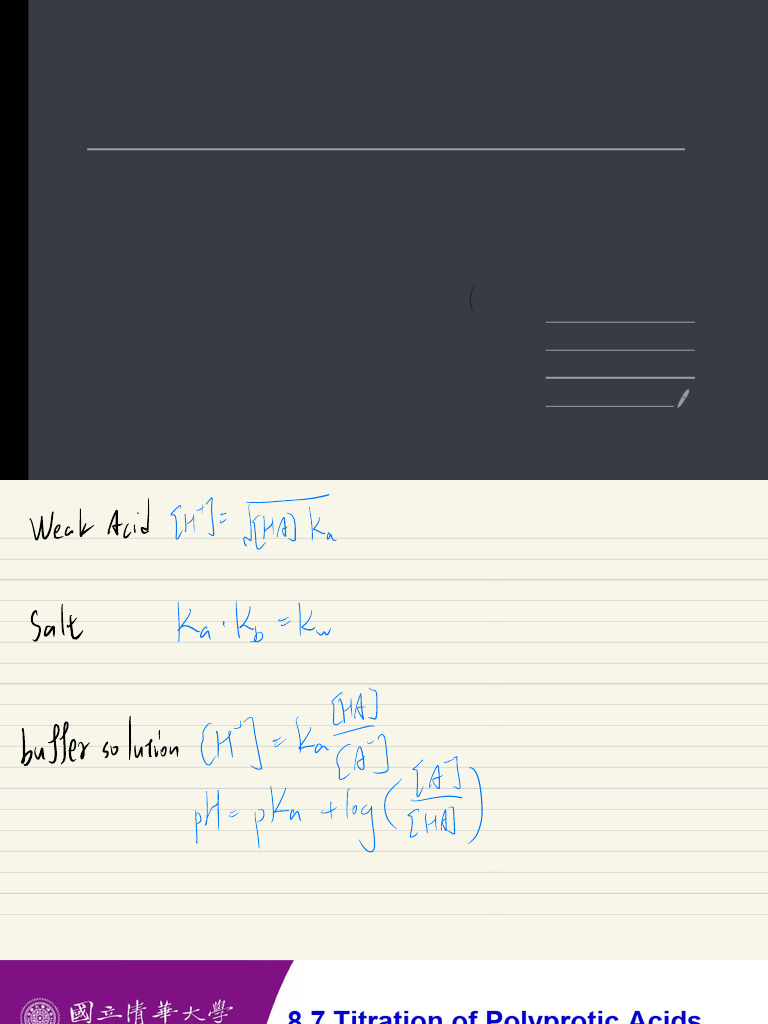 Weak Acid [H⁺]= √[HA] Ka
Salt Ka · Kb = Kw
buffer solution [H⁺] = Ka [HA]/[A⁻]
pH = pKa + log([A⁻]/[HA])
國立清華大學
8.7 Titration of Polyprotic Acids